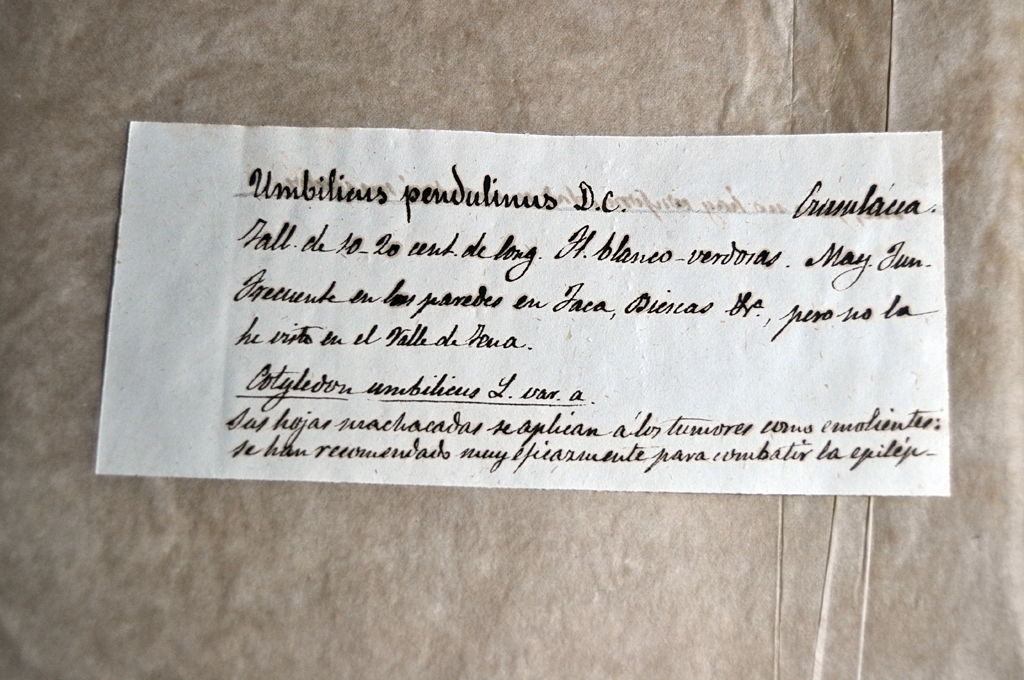 Umbilicus pendulinus D.C. Crasulácea.
Tall. de 10-20 cent. de long. Fl. blanco-verdosas. May. Jun.
Frecuente en las paredes en Jaca, Biescas &ª., pero no la
he visto en el Valle de Tena.
Cotyledon umbilicus L. var. a.
Sus hojas machacadas se aplican á los tumores como emolientes:
se han recomendado muy eficazmente para combatir la epilép-